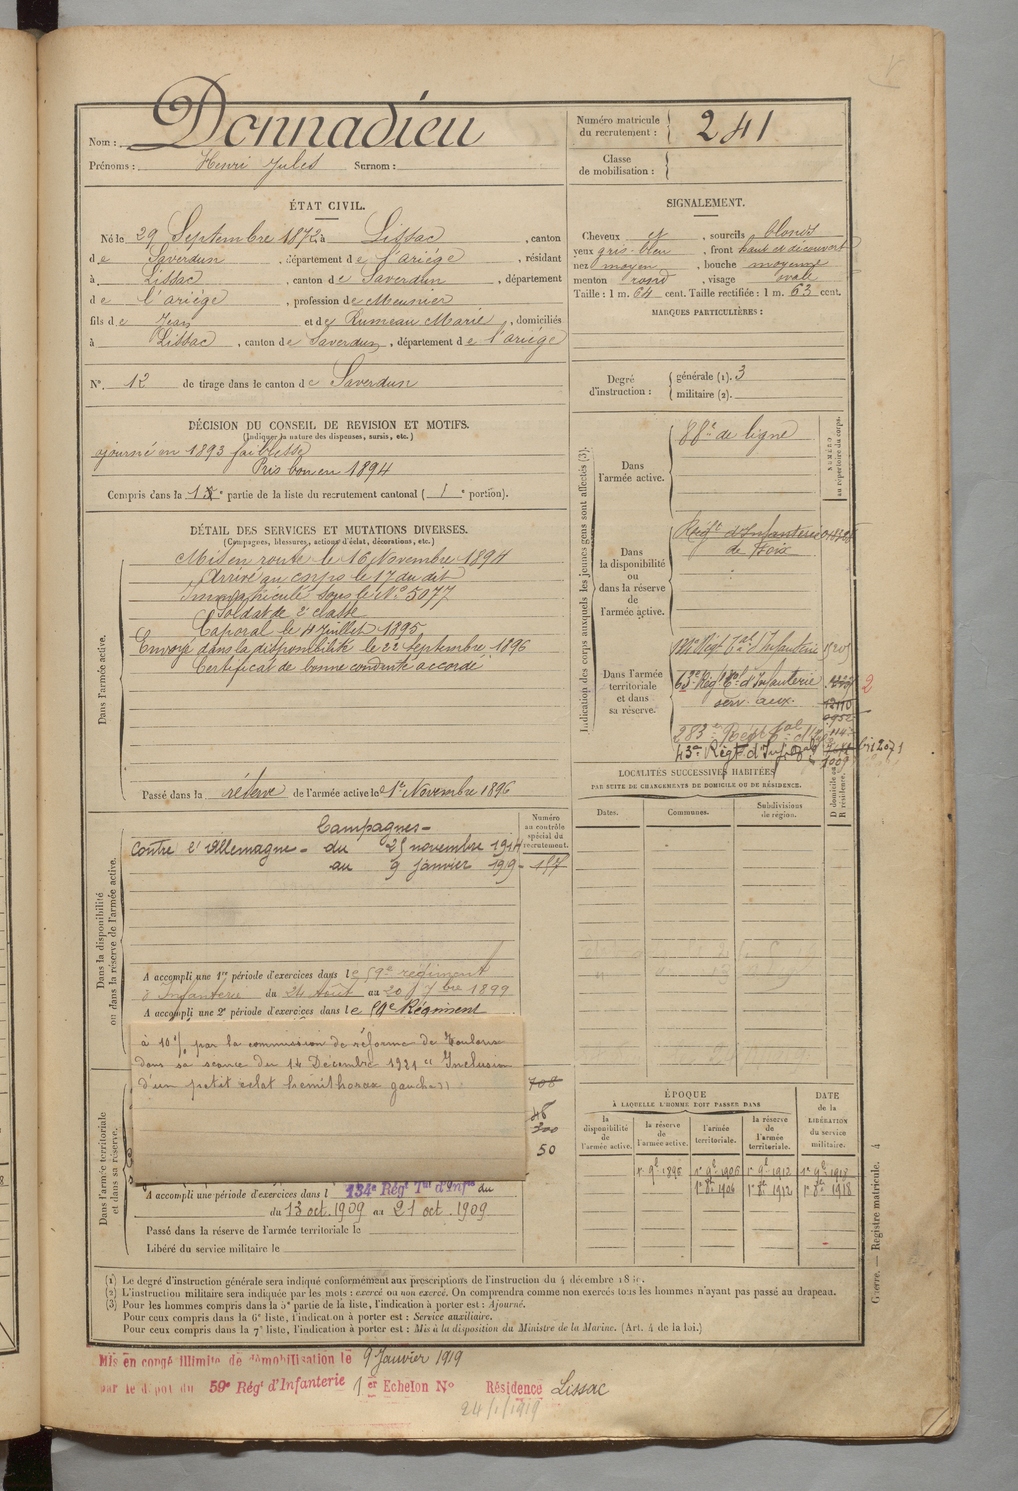 Nom : Donnadieu
Prénoms : Henri Jules Surnom :
Numéro matricule
du recrutement : 241
Classe
de mobilisation :
ÉTAT CIVIL.
Né le 29 Septembre 1872, à Lissac, canton
de Saverdun, département de l'ariège, résidant
à Lissac, canton de Saverdun, département
de l'ariège, profession de Meunier
fils de Jean et de Rumeau Marie, domiciliés
à Lissac, canton de Saverdun, département de l'ariège
N° 12 de tirage dans le canton de Saverdun
SIGNALEMENT.
Cheveux et, sourcils blonds
yeux gris-bleu, front haut et découvert
nez moyen, bouche moyenne
menton rond, visage ovale
Taille : 1 m. 64 cent. Taille rectifiée : 1 m. 63 cent.
MARQUES PARTICULIÈRES :
Degré
d'instruction :
générale (1). 3
militaire (2).
DÉCISION DU CONSEIL DE REVISION ET MOTIFS.
(Indiquer la nature des dispenses, sursis, etc.)
ajourné en 1893 faiblesse
Pris bon en 1894
Compris dans la 1e partie de la liste du recrutement cantonal ( 1e portion).
DÉTAIL DES SERVICES ET MUTATIONS DIVERSES.
(Campagnes, blessures, actions d'éclat, décorations, etc.)
Dans l'armée active.
Mis en route le 16 Novembre 1894
Arrivé au corps le 17 du dit
Immatriculé sous le N° 5077
Soldat de 2e classe
Caporal le 4 Juillet 1895
Envoyé dans la disponibilité le 22 Septembre 1896
Certificat de bonne conduite accordé
Passé dans la réserve de l'armée active le 1er Novembre 1896
Indication des corps auxquels les jeunes gens sont affectés (3).
NUMÉRO
au répertoire du corps.
Dans
l'armée active.
88e de ligne
Dans
la disponibilité
ou
dans la réserve
de
l'armée active.
Régt d'Infanterie
de Foix
Dans l'armée
territoriale
et dans
sa réserve.
134e Régt Tal d'Infanterie
63e Régt Tal d'Infanterie
serv. aux.
12110
283e Régt Tal d'Inf
43e Régt d'Inf
LOCALITÉS SUCCESSIVES HABITÉES
PAR SUITE DE CHANGEMENTS DE DOMICILE OU DE RÉSIDENCE.
D domicile ou
R résidence.
Dates. Communes. Subdivisions
de région.
Dans la disponibilité
ou dans la réserve de l'armée active.
Numéro
au contrôle
spécial du
recrutement.
Campagnes -
Contre l'Allemagne - du 25 novembre 1914
au 9 janvier 1919 - 157
A accompli une 1re période d'exercices dans le 59e régiment
d'Infanterie du 24 Août au 20 7bre 1899
A accompli une 2e période d'exercices dans le 59e Régiment
à 10 % par la commission de réforme de Toulouse
dans sa séance du 14 Décembre 1921 "Inclusion
d'un petit éclat hémithorax gauche"
708
46
200
50
Dans l'armée territoriale
et dans sa réserve.
A accompli une période d'exercices dans l 134e Régt Tal d'Infie du
du 13 oct. 1909 au 21 oct. 1909
Passé dans la réserve de l'armée territoriale le
Libéré du service militaire le
ÉPOQUE
À LAQUELLE L'HOMME DOIT PASSER DANS
la
disponibilité
de
l'armée active.
la réserve
de
l'armée active.
l'armée
territoriale.
la réserve
de
l'armée
territoriale.
DATE
de la
LIBÉRATION
du service
militaire.
1r 9e 1896 1r 9e 1906 1r 9e 1912
1r 8re 1906 1r 8re 1912 1r 8re 1918
(1) Le degré d'instruction générale sera indiqué conformément aux prescriptions de l'instruction du 4 décembre
(2) L'instruction militaire sera indiquée par les mots : exercé ou non exercé. On comprendra comme non exercés tous les hommes n'ayant pas passé au drapeau.
(3) Pour les hommes compris dans la 5e partie de la liste, l'indication à porter est : Ajourné.
Pour ceux compris dans la 6e liste, l'indication à porter est : Service auxiliaire.
Pour ceux compris dans la 7e liste, l'indication à porter est : Mis à la disposition du Ministre de la Marine. (Art. 4 de la loi.)
Guerre. — Registre matricule. 4
Mis en congé illimité de démobilisation le 9 Janvier 1919
par le dépôt du 59e Régt d'Infanterie 1er Echelon N° Résidence Lissac
24/1/1919